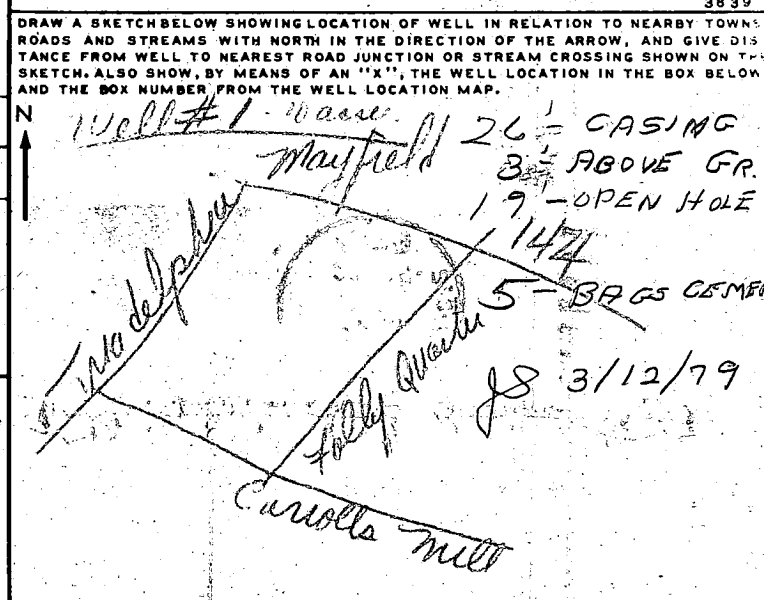 3839
DRAW A SKETCH BELOW SHOWING LOCATION OF WELL IN RELATION TO NEARBY TOWNS
ROADS AND STREAMS WITH NORTH IN THE DIRECTION OF THE ARROW, AND GIVE DIS
TANCE FROM WELL TO NEAREST ROAD JUNCTION OR STREAM CROSSING SHOWN ON THE
SKETCH. ALSO SHOW, BY MEANS OF AN "X", THE WELL LOCATION IN THE BOX BELOW
AND THE BOX NUMBER FROM THE WELL LOCATION MAP.
N
Well #1
Mayfield
26' - CASING
3' - ABOVE GR.
19' - OPEN HOLE
144
5 - BAGS CEMEN
JS 3/12/79
Triadelphia
Folly Quarter
Carrolls Mill